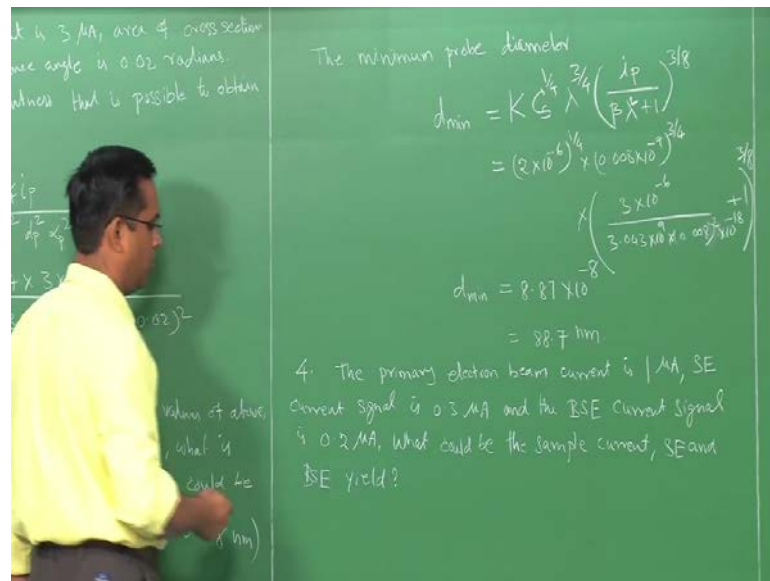 t is 3 μA, area of cross section
angle is 0.02 radians.
that is possible to obtain
ip
dp² αp²
× 3 ×
0.02)²
values of above,
, what is
could be
8 nm)
The minimum probe diameter
dmin = K Cs^1/4 λ^3/4 (ip / βλ²+1)^3/8
= (2×10^-6)^1/4 × (0.008×10^-9)^3/4
× (3×10^-6 / 3.043×10^9×(0.008)²×10^-18 +1)^3/8
dmin = 8.87×10^-8
= 88.7 nm
4. The primary electron beam current is 1 μA, SE
current signal is 0.3 μA and the BSE current signal
is 0.2 μA, What could be the sample current, SE and
BSE yield?